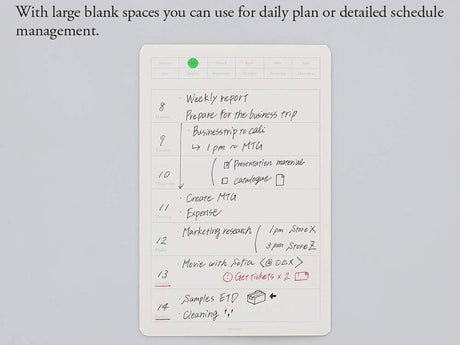 With large blank spaces you can use for daily plan or detailed schedule
management.
8 · Weekly report
Prepare for the business trip
9 · Business trip to cali
↳ 1pm ~ MTG
10 ☑ Presentation material
☐ catalogue
11 · Create MTG
· Expense
12 Marketing research 1pm Store X
3pm Store Z
13 Movie with Sofia <@ O△X>
! Get tickets x 2
14 · Samples ETD
· Cleaning